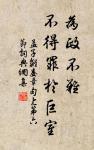 為政不難
不得罪於巨室
孟子離婁章句上第六
節詞典網集